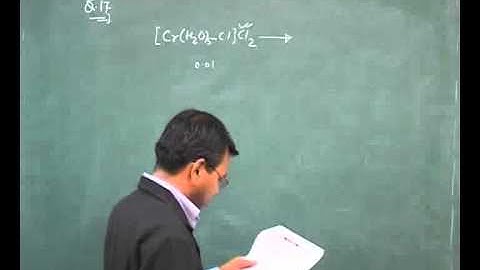 Q.17
[Cr(H₂O)₅Cl]Cl₂ →
0.01